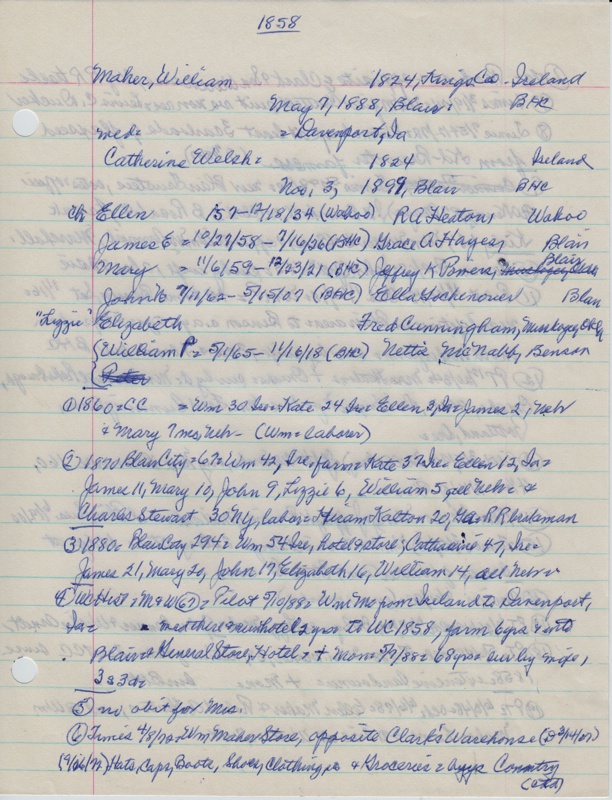 1858
Maher, William 1824, Kings Co. - Ireland
May 7, 1888, Blair. BHC
med= = Davenport, Ia
Catherine Welsh = 1824 Ireland
Nov. 3, 1899, Blair BHC
ch Ellen 57-12/18/34 (Wahoo) R A Heaton, Wahoo
James E = 10/27/58 - 7/16/26 (BHC) Grace A Hayes, Blair
Mary = 11/6/59 - 12/23/21 (BHC) Jeffrey K Powers, Blair
John 7/11/62 - 5/15/07 (BHC) Ella Blair
"Lizzie" Elizabeth Fred Cunningham, Okla
William P = 5/1/65 - 11/16/18 (BHC) Nettie McNabb, Benson
Peter
① 1860 = CC = Wm 30 Ire = Kate 24 Ire = Ellen 3, Ia = James 2, Nebr
& Mary 7 mo, Neb - (Wm = laborer)
② 1870 Blair City = 67 = Wm 42, Ire, farm = Kate 37 Ire = Ellen 12, Ia =
James 11, Mary 10, John 9, Lizzie 6, William 5 all Neb = &
Charles Stewart 30 NY, labor = Hiram Kalton 20, RR brakeman
③ 1880 = Blair City 294 = Wm 54 Ire, hotel & store; Catharine 47, Ire =
James 21, Mary 20, John 17, Elizabeth 16, William 14, all Neb =
④ = M & W 67 = Pilot 5/10/88 = Wm Mc from Ireland to Davenport,
Ia = med there & 2 yrs to WC 1858, farm 6 yrs & into
Blair & General Store, Hotel = + Mon = 5/7/88 = 68 yrs surv by wife,
3 s 3 d =
⑤ no obit for Mrs.
⑥ Times 4/8/72 = Wm Maher Store, opposite Clark's Warehouse
(9/26/72) Hats, Caps, Boots, Shoes, Clothing & Groceries = Country